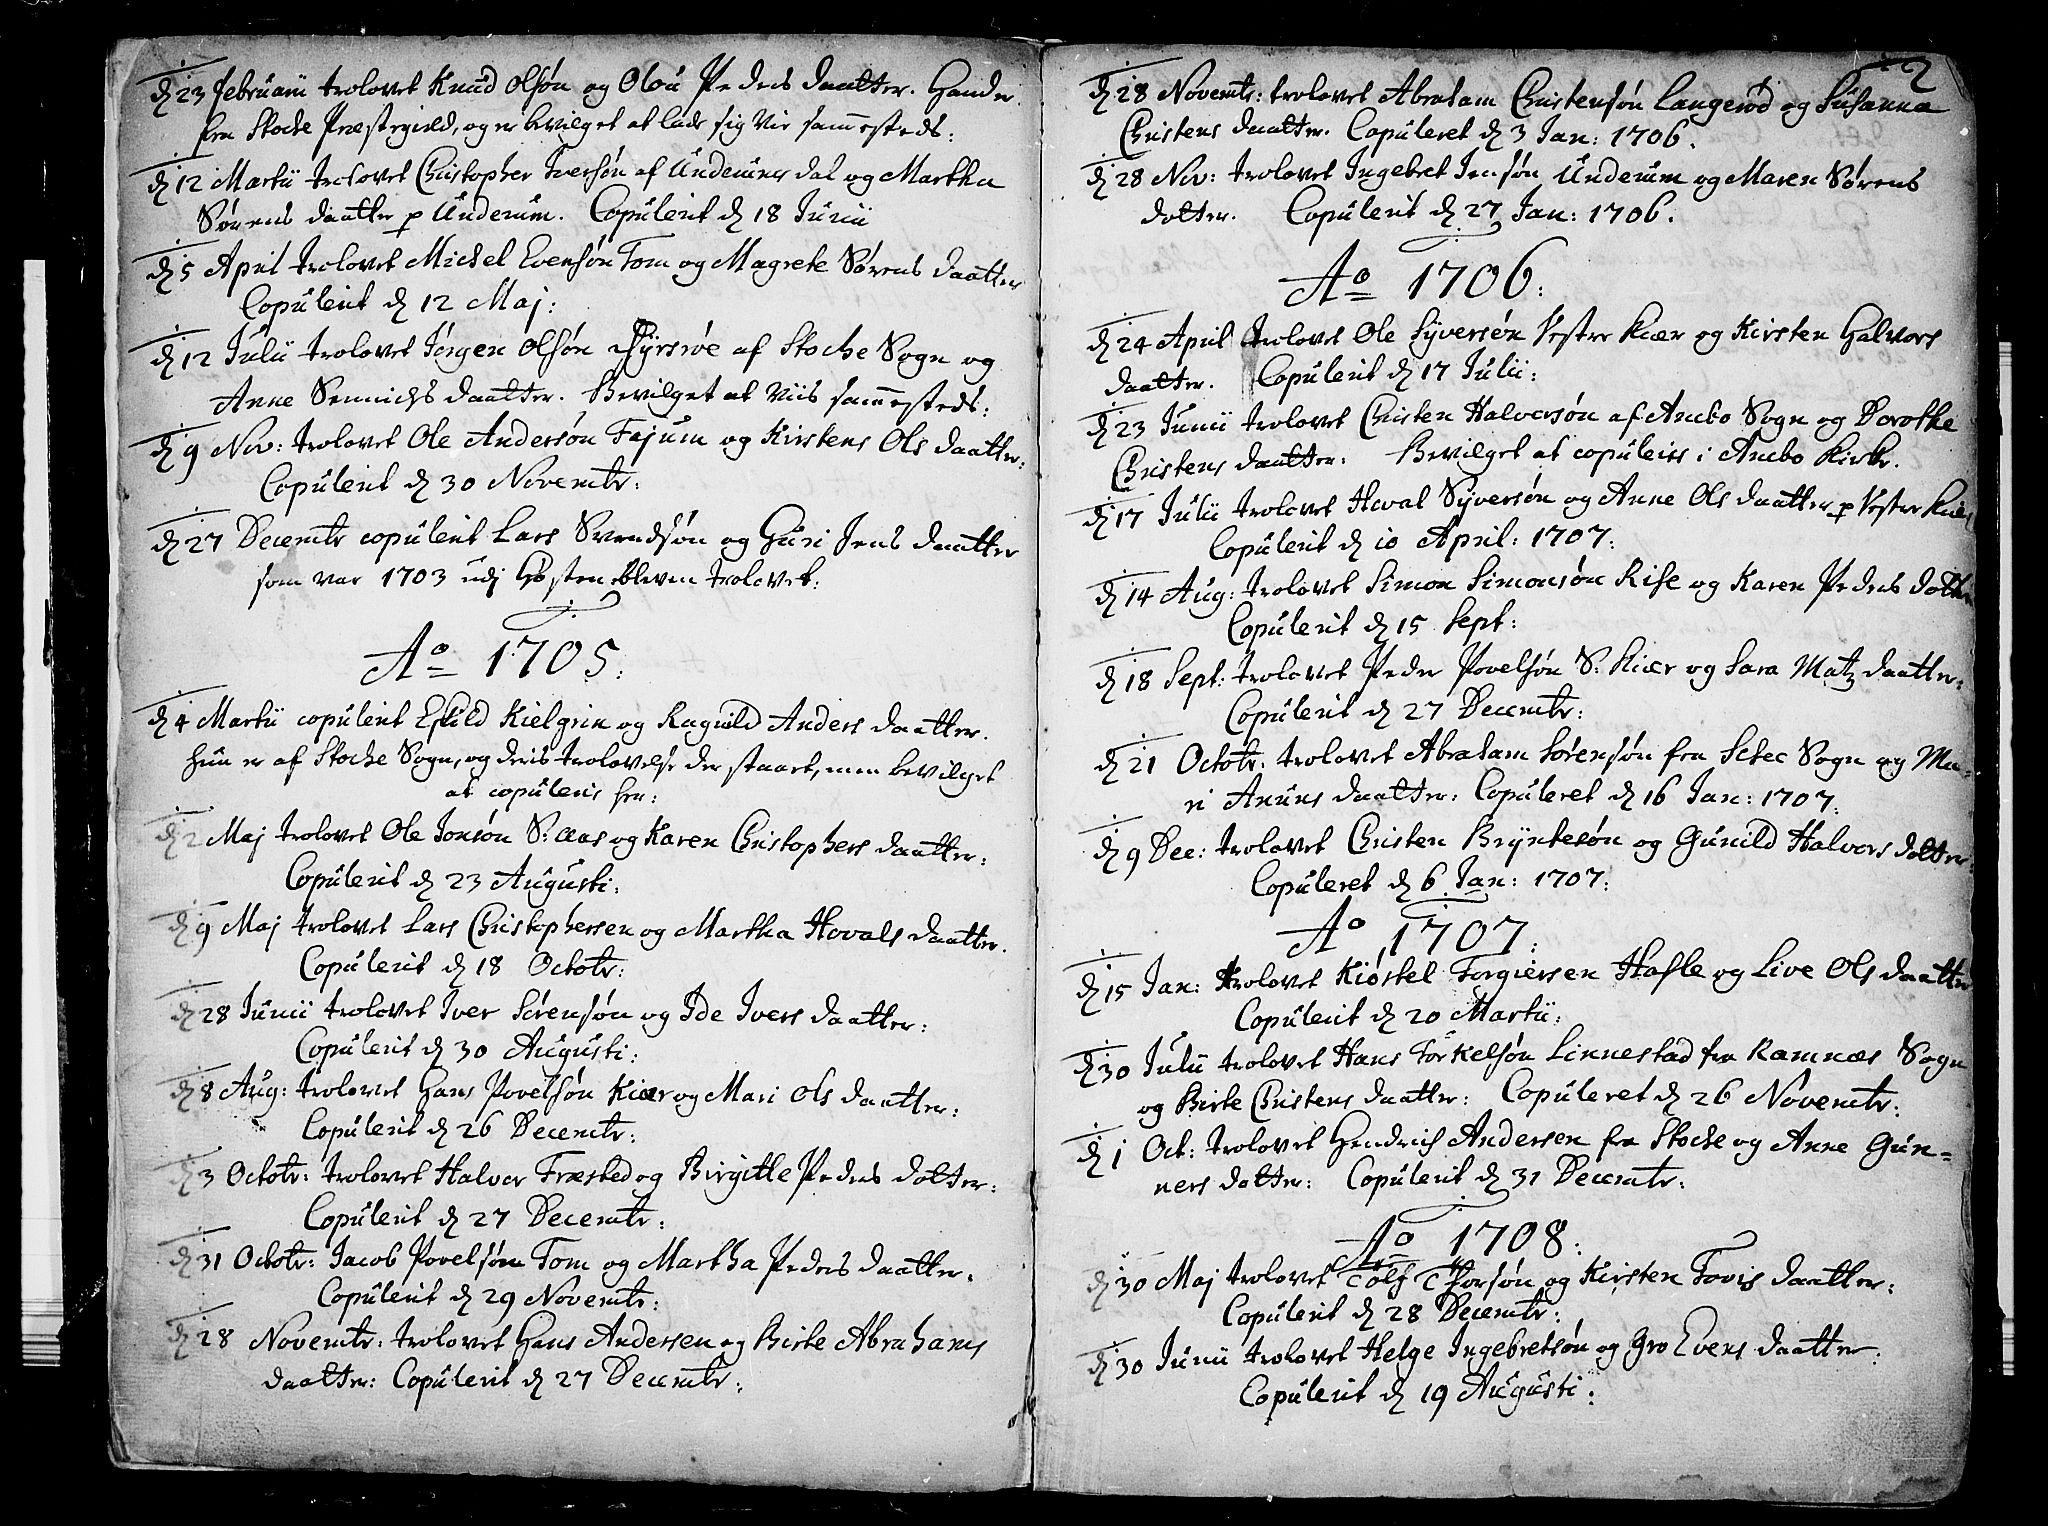 d 23 Februarii trolovet Knud Olsøn og Olou Peders daatter. Hand er
fra Stocke Præstegield, og er bevilget at lade sig vie sammesteds:
d 12 Martii trolovet Christopher Iversøn af Underums dal og Martha
Sørens daatter p Underum. Copulerit d 18 Junii
d 5 April trolovet Michel Evensøn Tom og Magrete Sørens daatter
Copulerit d 12 Maj:
d 12 Julii trolovet Jørgen Olsøn af Stocke Sogn og
Anne Sennichs daatter. Bevilget at viis sammesteds:
d 9 Nov: trolovet Ole Andersøn Fajum og Kirstens Ols daatter:
Copulerit d 30 Novembr:
d 27 Decembr copulerit Lars Svendsøn og Guri Jens daatter
som var 1703 udj Høsten bleven trolovet:
Ao 1705:
d 4 Martii copulerit Eskild Kielgrin og Ragnild Anders daatter.
hun er af Stocke Sogn, og deris trolovelse der staaet, men bevilget
at copuleris her:
d 2 Maj trolovet Ole Jonsøn S: Aas og Karen Christophers daatter:
Copulerit d 23 Augusti:
d 9 Maj trolovet Lars Christophersen og Martha Hovals daatter.
Copulerit d 18 Octobr:
d 28 Junii trolovet Iver Sørensøn og Ide Ivers daatter:
Copulerit d 30 Augusti:
d 8 Aug: trolovet Hans Povelsøn Kiær og Mari Ols daatter:
Copulerit d 26 Decembr:
d 3 Octobr: trolovet Halvor Fræsted og Birgitte Peders dotter:
Copulerit d 27 Decembr:
d 31 Octobr: Jacob Povelsøn Tom og Martha Peders daatter.
Copulerit d 29 Novembr:
d 28 Novembr: trolovet Hans Andersen og Birte Abrahams
daatter: Copulerit d 27 Decembr:
2
d 28 Novembr: trolovet Abraham Christensøn Langerød og Susanna
Christens daatter. Copuleret d 3 Jan: 1706.
d 28 Nov: trolovet Ingebret Jensøn Underum og Maren Sørens
dotter. Copulerit d 27 Jan: 1706.
Ao 1706:
d 24 April trolovet Ole Syversøn Vestre Kiær og Kirsten Halvors
daatter. Copulerit d 17 Julii:
d 23 Junii trolovet Christen Halvorsøn af Arebo Sogn og Dorothe
Christens daatter: Bevilget at copuleris i Arebo Kirke.
d 17 Julii trolovet Hoval Syversøn og Anne Ols daatter p Vestre Kiær
Copulerit d 10 April: 1707:
d 14 Aug: trolovet Simon Simonsøn Rise og Karen Peders dotter
Copulerit d 15 Sept:
d 18 Sept: trolovet Peder Povelsøn S: Kiær og Sara Matz daatter:
Copulerit d 27 Decembr:
d 21 Octobr: trolovet Abraham Sørensøn fra Setec Sogn og Ma-
ri Anuns daatter: Copuleret d 16 Jan: 1707:
d 9 Dec: trolovet Christen Bryntesøn og Gunild Halvors dotter:
Copuleret d 6 Jan: 1707:
Ao 1707:
d 15 Jan: trolovet Kiøstel Torgiersen Hasle og Live Ols daatter
Copulerit d 20 Martii:
d 30 Julii trolovet Hans Torkelsøn Linnestad fra Ramnæs Sogn
og Birte Christens daatter: Copuleret d 26 Novembr:
d 1 Oct: trolovet Hendrich Andersen fra Stocke og Anne Gun-
ners dotter: Copulerit d 31 Decembr:
Ao 1708:
d 30 Maj trolovet Tolf Thorsøn og Kirsten Tovis daatter:
Copulerit d 28 Decembr:
d 30 Junii trolovet Helge Ingebretsøn og Gro Evens daatter:
Copulerit d 19 Augusti: